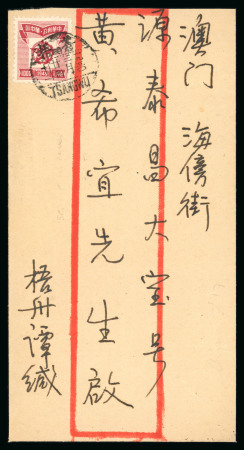 澳门 海傍街
源泰昌大宝号
黄布宜先生啟
梧州譚緘
TSANGWU